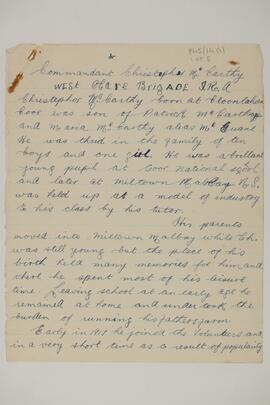 P148/14(1)
1 of 5
Commandant Christopher Mc Carthy
WEST Clare BRIGADE I.R.A
Christopher Mc Carthy born at Cloonlaheen
Coor was son of Patrick Mc Carthy
and Maria Mc Carthy alias
He was thrid in the family of ten
boys and one girl. He was a brillant
young pupil at Coor National school
and later at Miltown Malbay N.S.
was held up as a model of industry
to his class by his tutor.
His parents
moved into Miltown Malbay while
was still young but the place of his
birth held many memories for him and
there he spent most of his leisure
time. Leaving school at an early age he
remained at home and under took the
burden of running his fathers farm.
Early in 1917 he joined the Volunteers and
in a very short time as a result of popularity